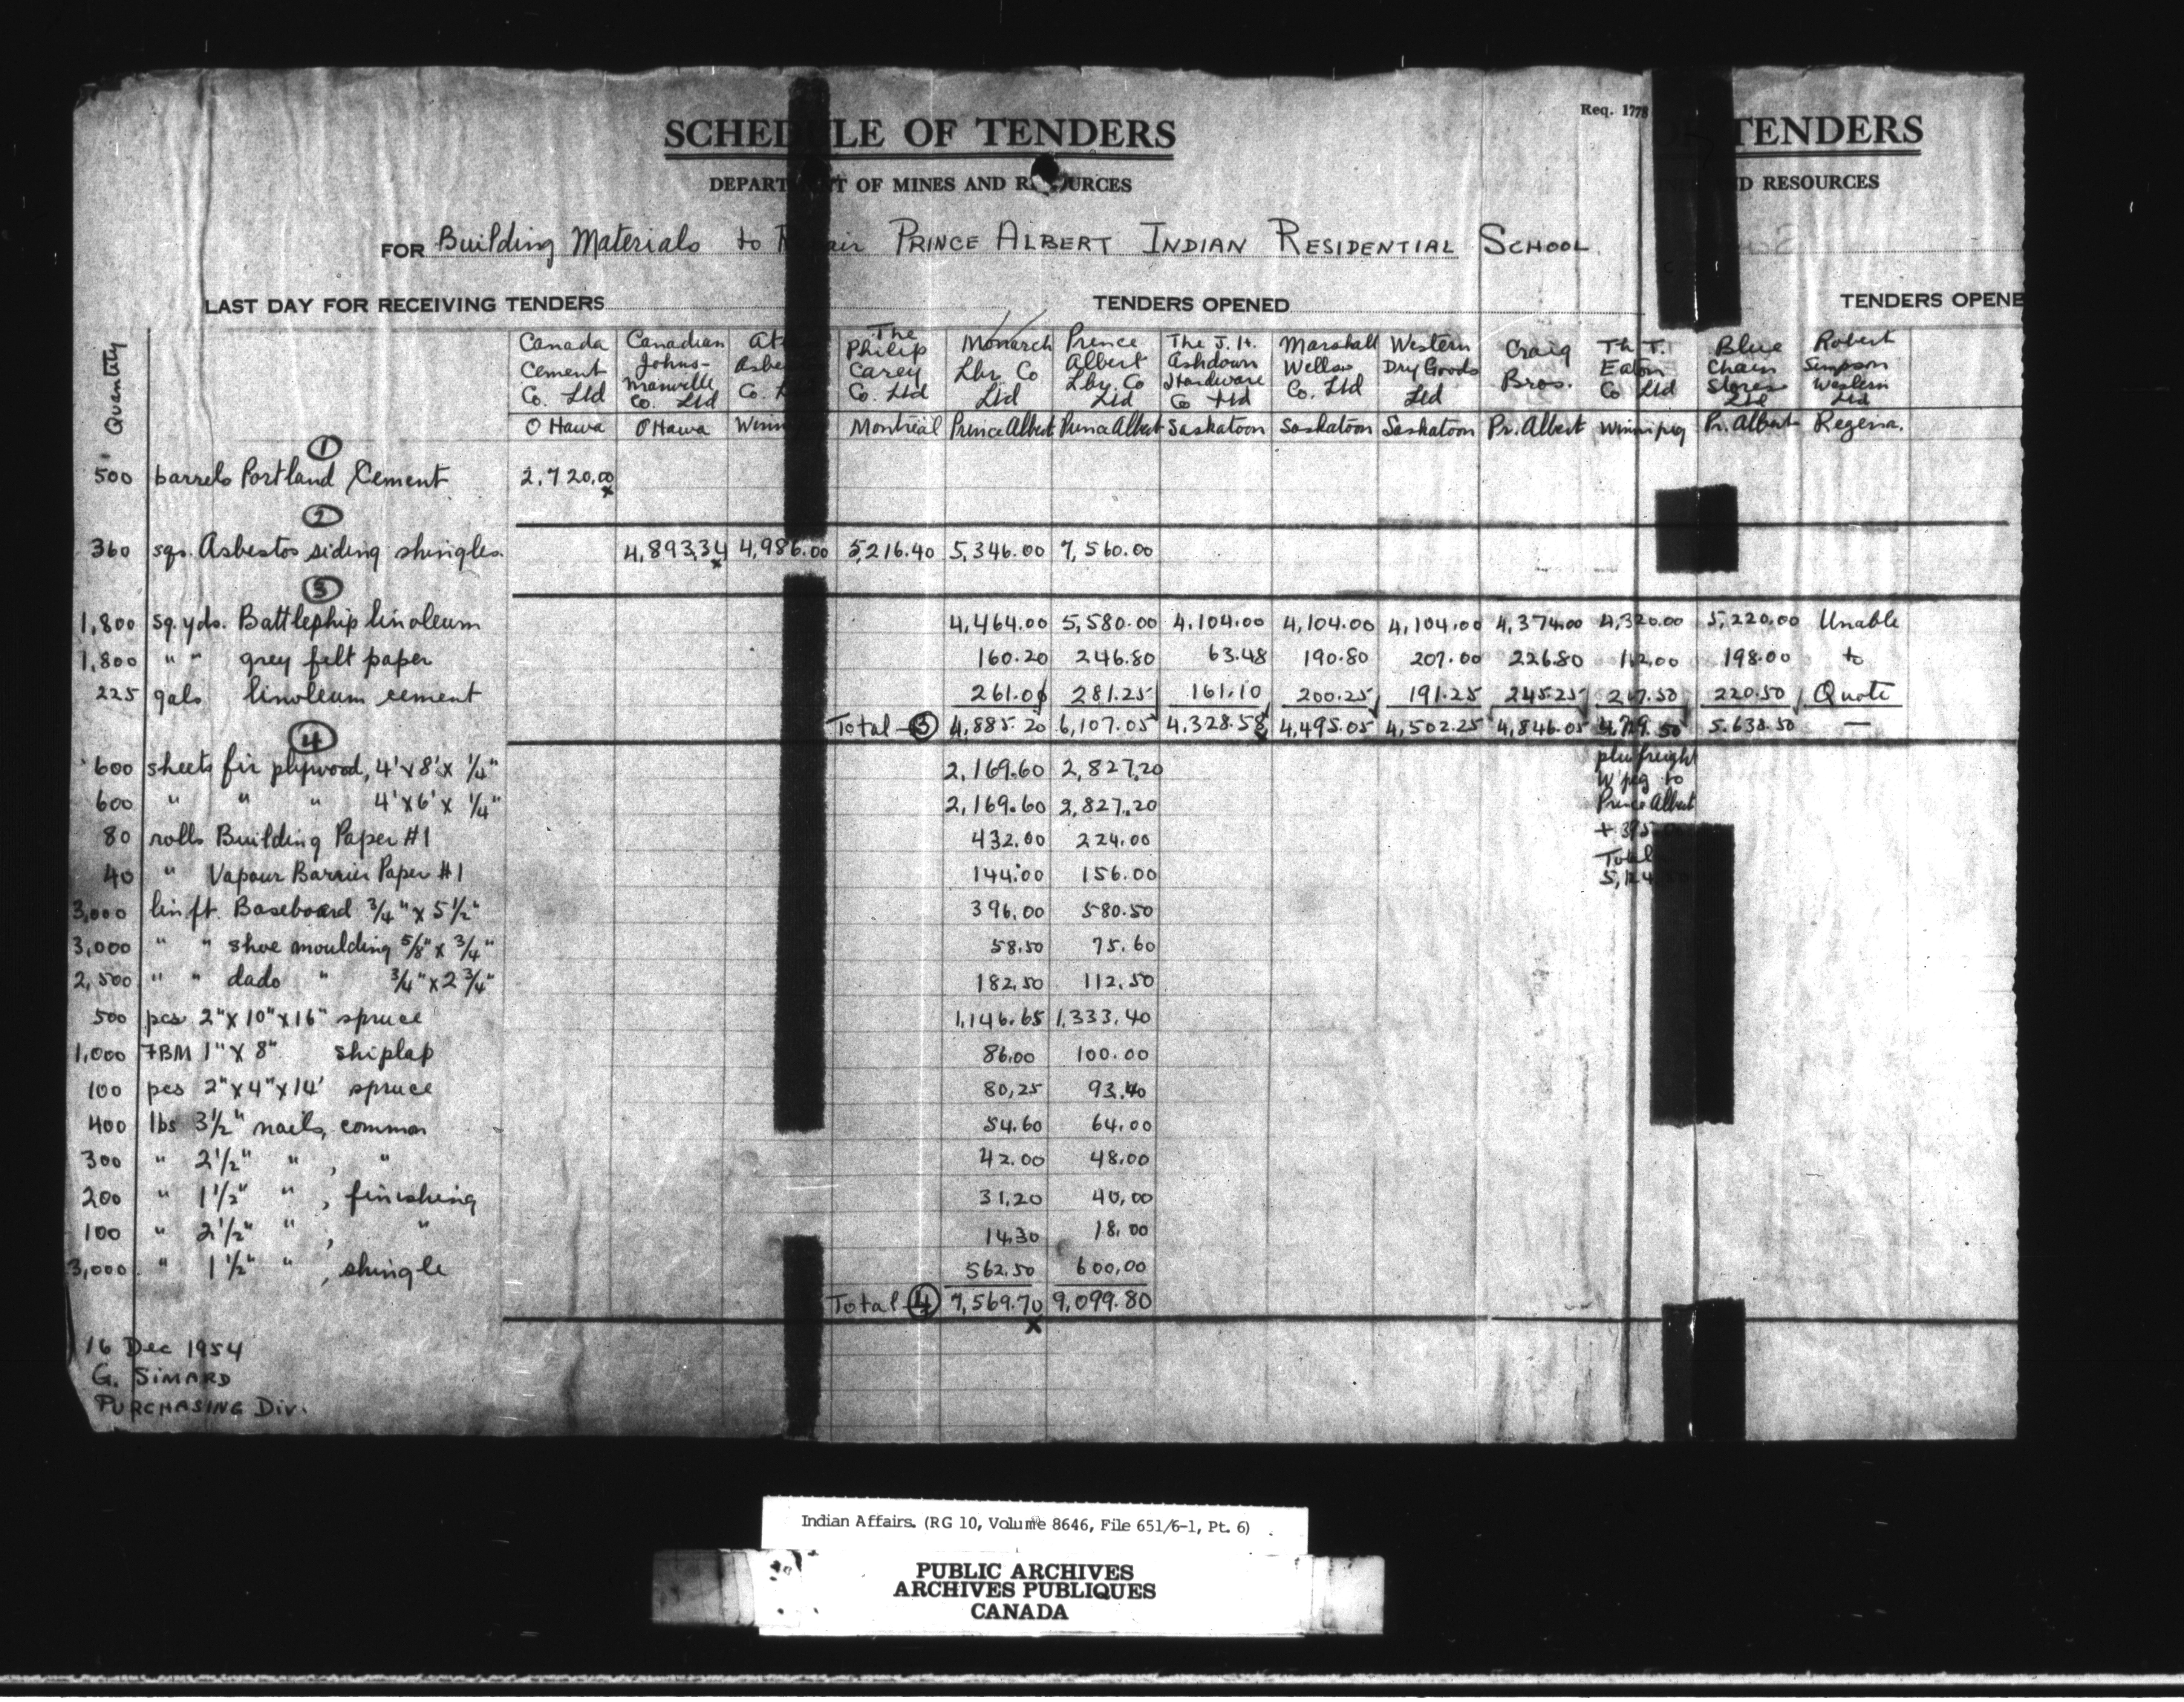 Req. 1778
SCHEDULE OF TENDERS
TENDERS
DEPARTMENT OF MINES AND RESOURCES
D RESOURCES
FOR Building Materials to Repair PRINCE ALBERT INDIAN RESIDENTIAL SCHOOL
LAST DAY FOR RECEIVING TENDERS TENDERS OPENED TENDERS OPENE
Quantity
Canada Cement Co. Ltd Ottawa
Canadian Johns-Manville Co. Ltd Ottawa
Asbe Co. Winn
The Philip Carey Co. Ltd Montreal
Monarch Lbr Co Ltd Prince Albert
Prince Albert Lbr. Co Ltd Prince Albert
The J. H. Ashdown Hardware Co Ltd Saskatoon
Marshall Wells Co. Ltd Saskatoon
Western Dry Goods Ltd Saskatoon
Craig Bros. Pr. Albert
The T. Eaton Co Ltd Winnipeg
Blue Chain Stores Ltd Pr. Albert
Robert Simpson Western Ltd Regina.
1
500 barrels Portland Cement 2,720.00 x
2
360 sqs. Asbestos siding shingles. 4,893.34 x 4,986.00 5,216.40 5,346.00 7,560.00
3
1,800 sq. yds. Battleship linoleum 4,464.00 5,580.00 4,104.00 4,104.00 4,104.00 4,374.00 4,320.00 5,220.00 Unable
1,800 " " grey felt paper 160.20 246.80 63.48 190.80 207.00 226.80 198.00 to
225 gals linoleum cement 261.00 281.25 161.10 200.25 191.25 245.25 220.50 Quote
Total 3 4,885.20 6,107.05 4,328.58 4,495.05 4,502.25 4,846.05 5,638.50 —
plus freight
W'peg to
Prince Albert
Total
4
600 sheets fir plywood, 4' x 8' x 1/4" 2,169.60 2,827.20
600 " " " 4' x 6' x 1/4" 2,169.60 2,827.20
80 rolls Building Paper #1 432.00 224.00
40 " Vapour Barrier Paper #1 144.00 156.00
3,000 lin ft. Baseboard 3/4" x 5 1/2" 396.00 580.50
3,000 " " shoe moulding 5/8" x 3/4" 58.50 75.60
2,500 " " dado " 3/4" x 2 3/4" 182.50 112.50
500 pcs 2" x 10" x 16" spruce 1,146.65 1,333.40
1,000 FBM 1" x 8" shiplap 86.00 100.00
100 pcs 2" x 4" x 14' spruce 80.25 93.40
400 lbs 3 1/2" nails, common 54.60 64.00
300 " 2 1/2" " , " 42.00 48.00
200 " 1 1/2" " , finishing 31.20 40.00
100 " 2 1/2" " , " 14.30 18.00
3,000 " 1 1/2" " , shingle 562.50 600.00
Total 4 7,569.70 x 9,099.80
16 Dec 1954
G. SIMARD
PURCHASING DIV.
Indian Affairs. (RG 10, Volume 8646, File 651/6-1, Pt. 6)
PUBLIC ARCHIVES
ARCHIVES PUBLIQUES
CANADA